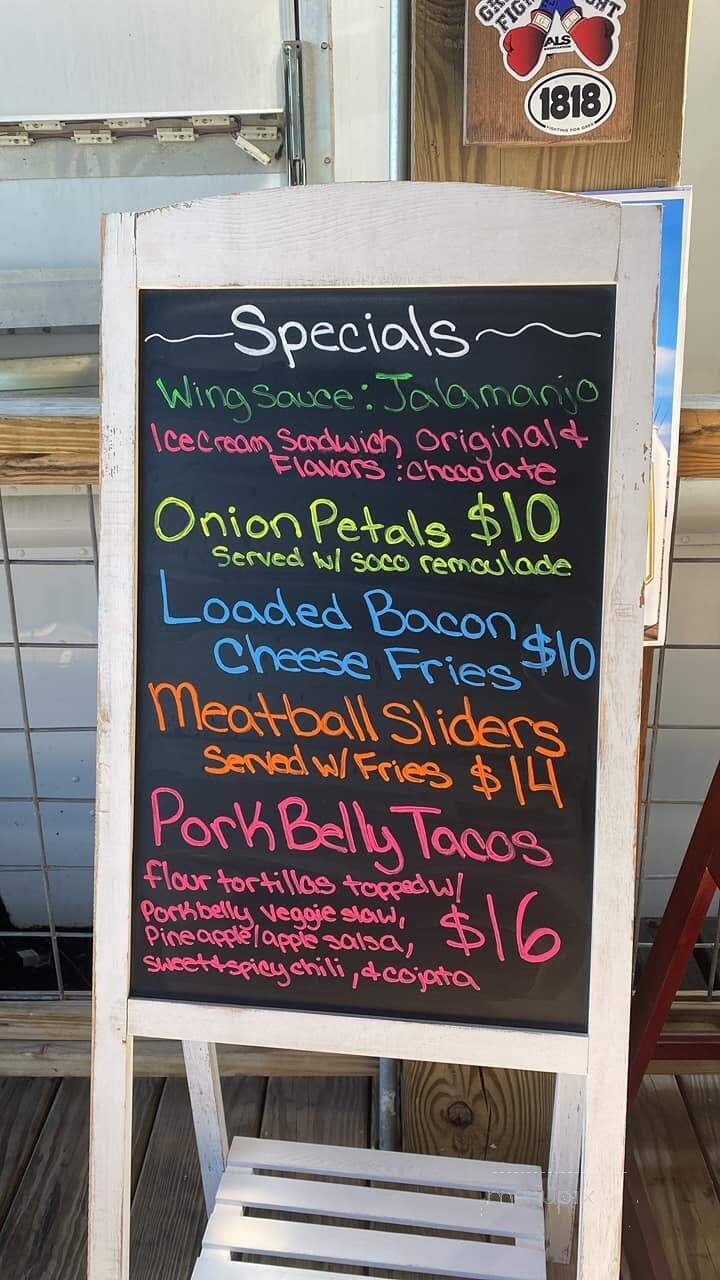 FIGHT
ALS
1818
FIGHTING FOR GREG
Specials
Wing sauce: Jalamanjo
Ice Cream Sandwich Original &
Flavors: chocolate
Onion Petals $10
Served w/ soco remoulade
Loaded Bacon
Cheese Fries $10
Meatball Sliders
Served w/ Fries $14
Pork Belly Tacos
flour tortillas topped w/
Pork belly, veggie slaw,
Pineapple/apple salsa, $16
sweet & spicy chili, & cojata
menupix